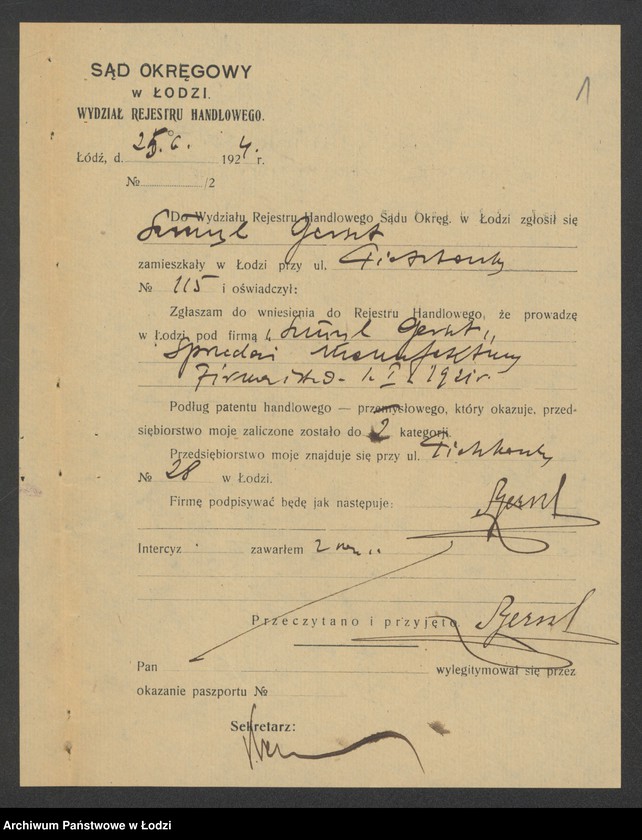 1
SĄD OKRĘGOWY
w ŁODZI.
WYDZIAŁ REJESTRU HANDLOWEGO.
Łódź, d. 25. 6. 1924 r.
№ /2
Do Wydziału Rejestru Handlowego Sądu Okręg. w Łodzi zgłosił się
Szmyl Gerszt
zamieszkały w Łodzi przy ul. Piotrkowsk
№ 115 i oświadczył:
Zgłaszam do wniesienia do Rejestru Handlowego, że prowadzę
w Łodzi pod firmą „Szmyl Gerszt"
Sprzedaż Manufaktury
Firma istn. 1. I. 1921 r.
Podług patentu handlowego — przemysłowego, który okazuje, przed-
siębiorstwo moje zaliczone zostało do 2 kategorji.
Przedsiębiorstwo moje znajduje się przy ul. Piotrkowsk
№ 28 w Łodzi.
Firmę podpisywać będę jak następuje:
Intercyz zawarłem
Przeczytano i przyjęto
Pan wylegitymował się przez
okazanie paszportu №
Sekretarz:
Archiwum Państwowe w Łodzi